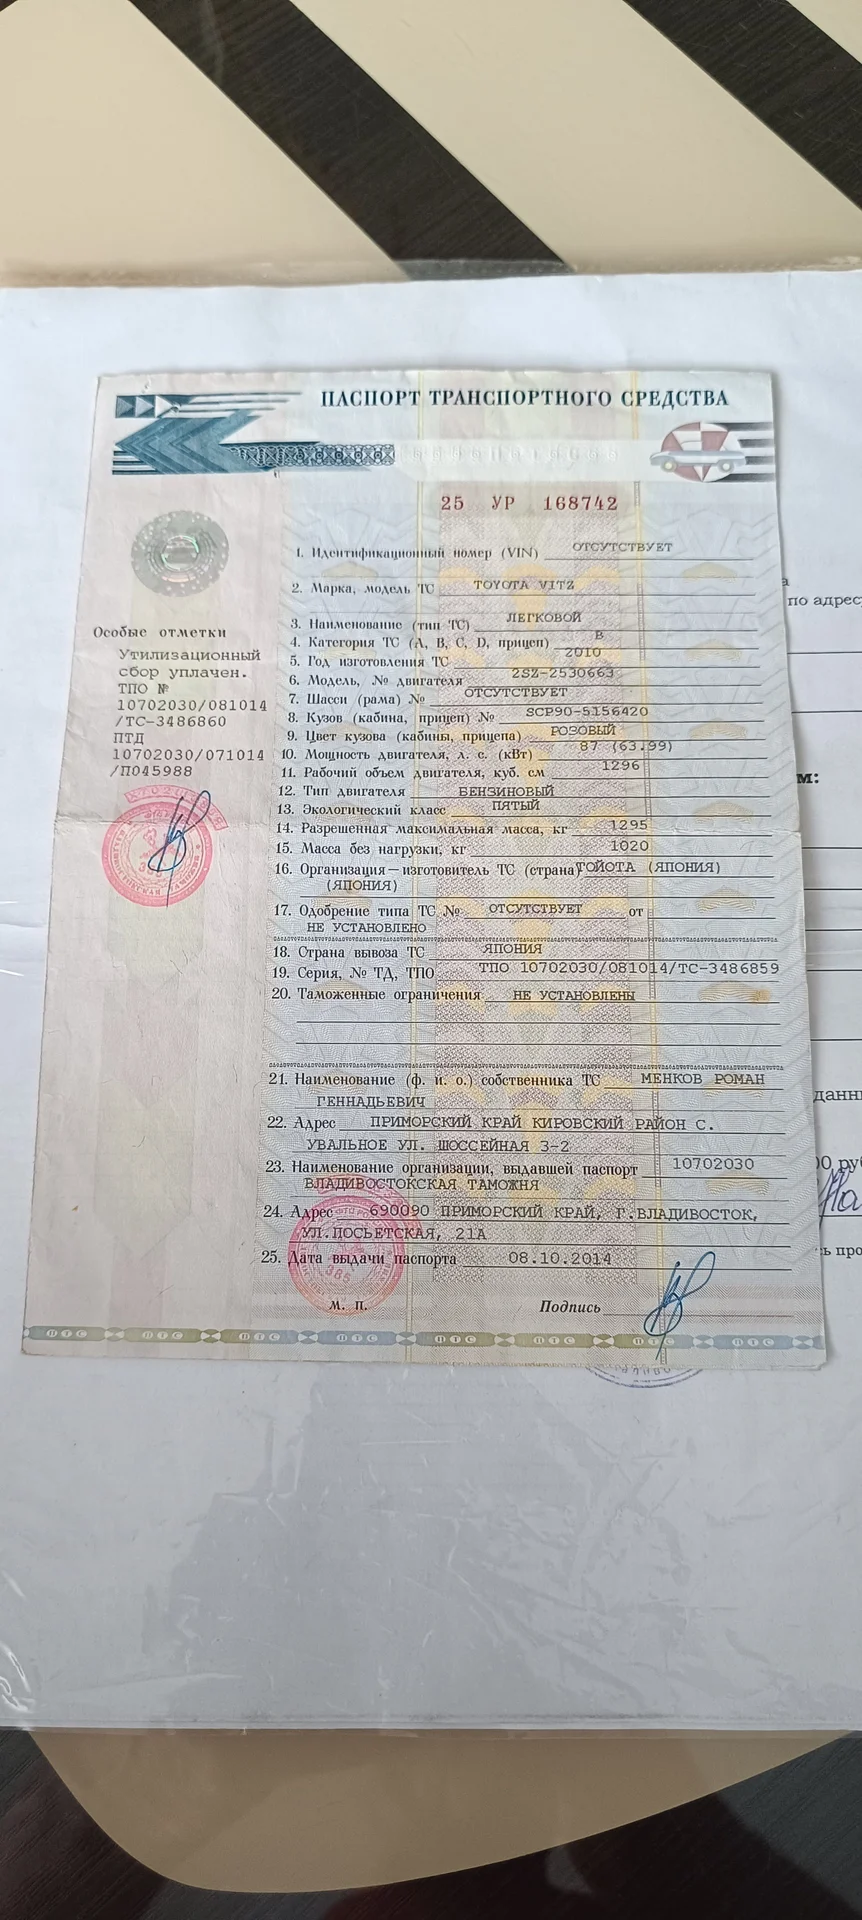 ПАСПОРТ ТРАНСПОРТНОГО СРЕДСТВА
25 УР 168742
1. Идентификационный номер (VIN) ОТСУТСТВУЕТ
2. Марка, модель ТС TOYOTA VITZ
3. Наименование (тип ТС) ЛЕГКОВОЙ
4. Категория ТС (A, B, C, D, прицеп) B
5. Год изготовления ТС 2010
6. Модель, № двигателя 2SZ-2530663
7. Шасси (рама) № ОТСУТСТВУЕТ
8. Кузов (кабина, прицеп) № SCP90-5156420
9. Цвет кузова (кабины, прицепа) РОЗОВЫЙ
10. Мощность двигателя, л. с. (кВт) 87 (63.99)
11. Рабочий объем двигателя, куб. см 1296
12. Тип двигателя БЕНЗИНОВЫЙ
13. Экологический класс ПЯТЫЙ
14. Разрешенная максимальная масса, кг 1295
15. Масса без нагрузки, кг 1020
16. Организация—изготовитель ТС (страна) ТОЙОТА (ЯПОНИЯ)
(ЯПОНИЯ)
17. Одобрение типа ТС № ОТСУТСТВУЕТ от
НЕ УСТАНОВЛЕНО
18. Страна вывоза ТС ЯПОНИЯ
19. Серия, № ТД, ТПО ТПО 10702030/081014/ТС-3486859
20. Таможенные ограничения НЕ УСТАНОВЛЕНЫ
21. Наименование (ф. и. о.) собственника ТС МЕНКОВ РОМАН
ГЕННАДЬЕВИЧ
22. Адрес ПРИМОРСКИЙ КРАЙ КИРОВСКИЙ РАЙОН С.
УВАЛЬНОЕ УЛ. ШОССЕЙНАЯ 3-2
23. Наименование организации, выдавшей паспорт 10702030
ВЛАДИВОСТОКСКАЯ ТАМОЖНЯ
24. Адрес 690090 ПРИМОРСКИЙ КРАЙ, Г.ВЛАДИВОСТОК,
УЛ.ПОСЬЕТСКАЯ, 21А
25. Дата выдачи паспорта 08.10.2014
М. П. Подпись
Особые отметки
Утилизационный
сбор уплачен.
ТПО №
10702030/081014
/ТС-3486860
ПТД
10702030/071014
/П045988
ПТС ПТС ПТС ПТС ПТС ПТС ПТС ПТС
по адресу
м: